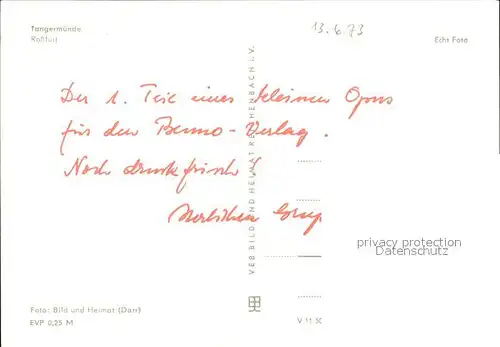 Tangermünde
Roßfurt
13.6.73
Echt Foto
Der 1. Teil eines kleinen Opus
für den Benno-Verlag.
Noch druckfrisch!
Herzlichen
VEB BILD UND HEIMAT REICHENBACH I. V.
privacy protection
Datenschutz
Foto: Bild und Heimat (Darr)
EVP 0,25 M
V 11 50